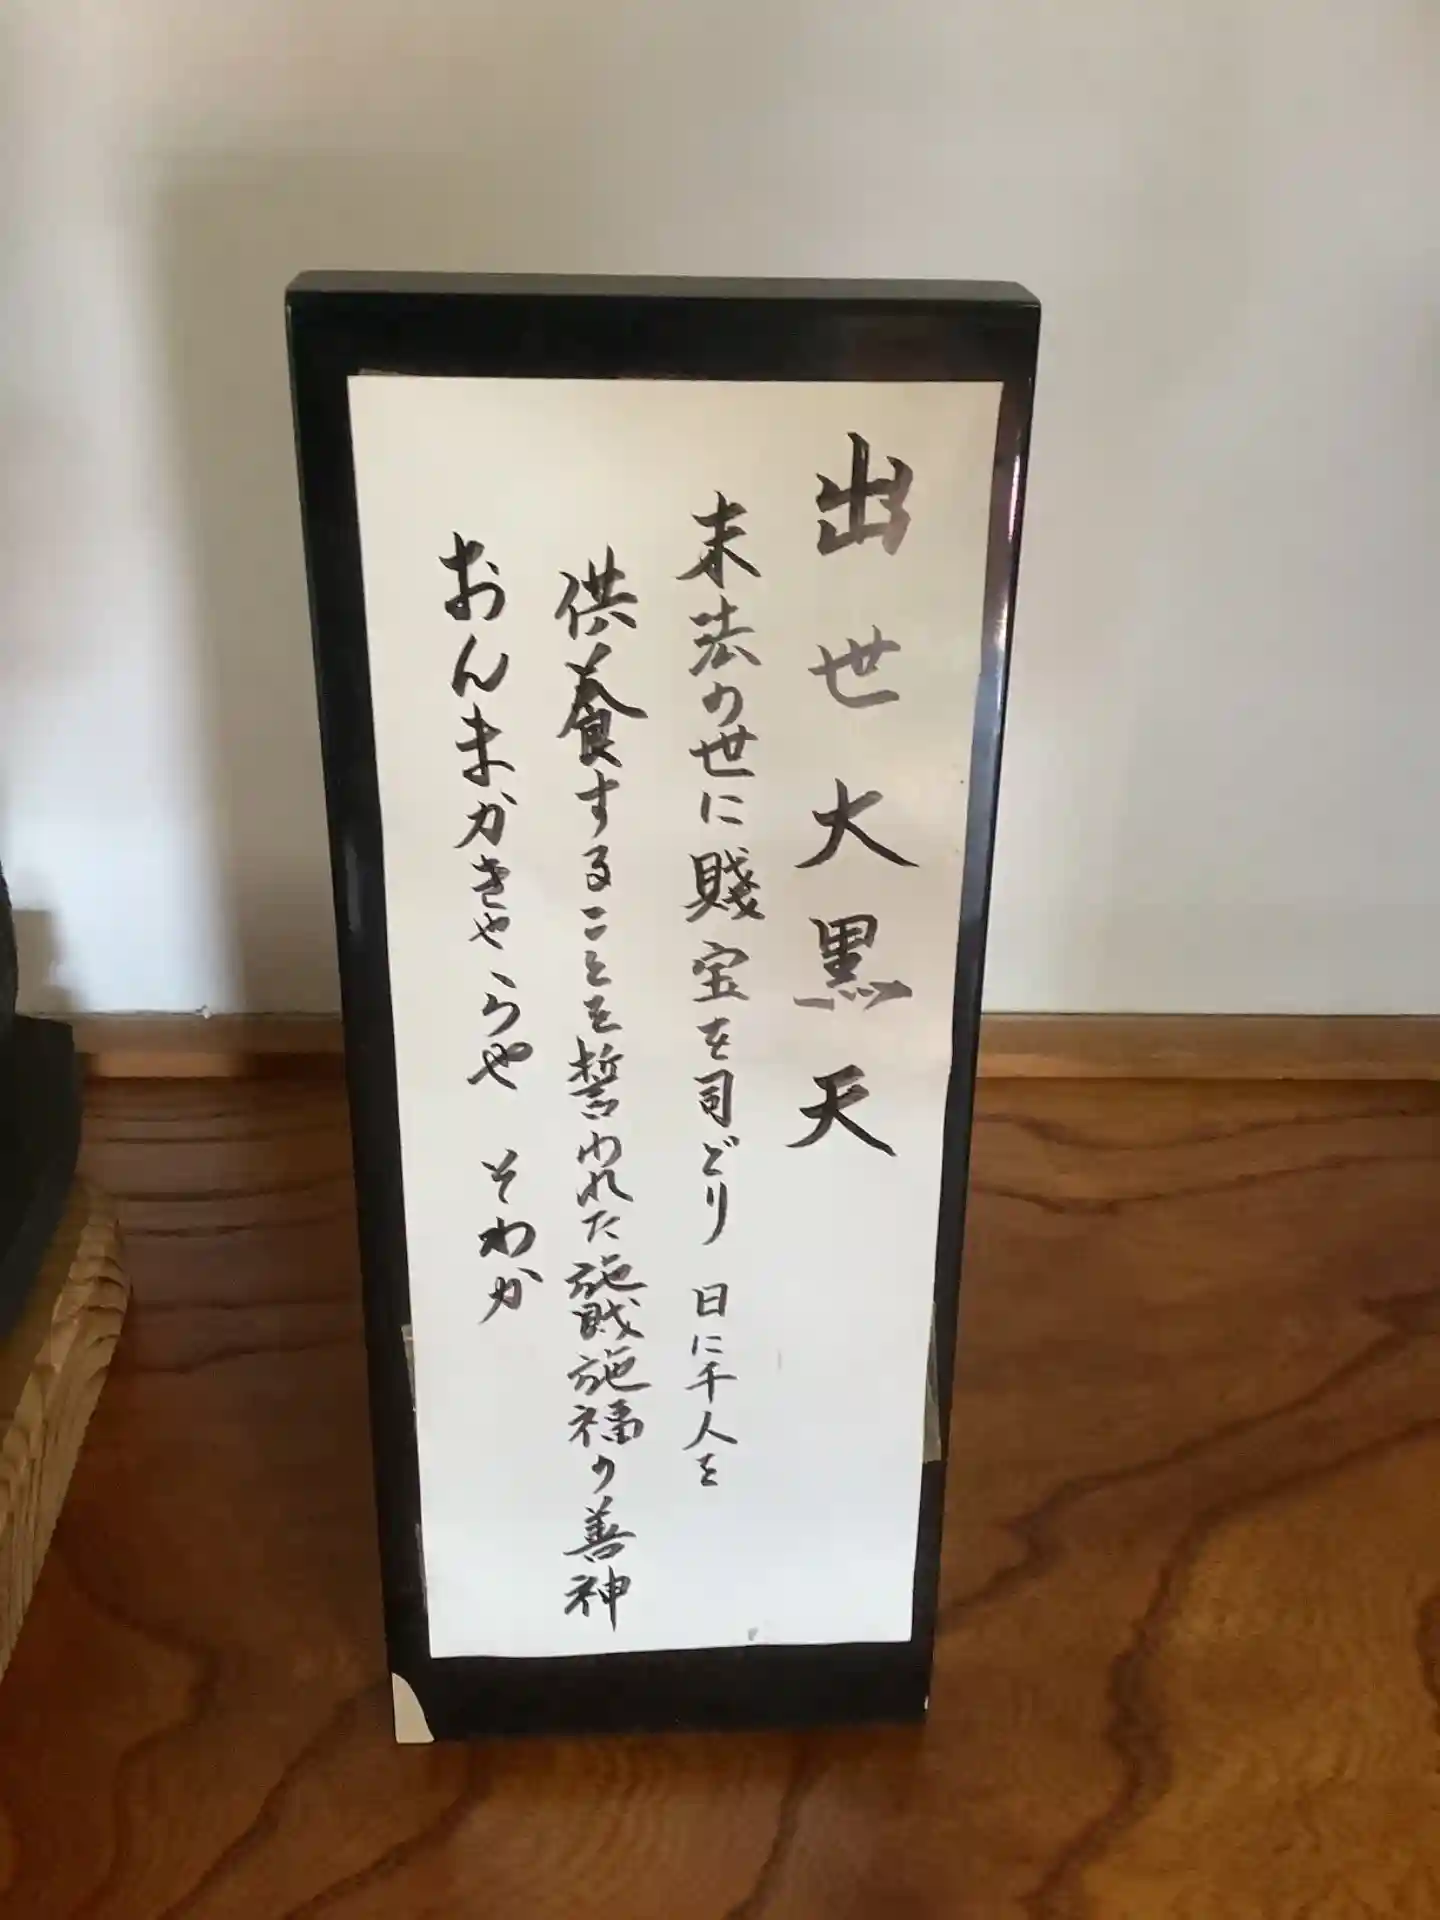 出世大黒天
末法の世に賤宝を司どり 日に千人を
供養することを誓われた施財施福の善神
おんまかきゃらや そわか